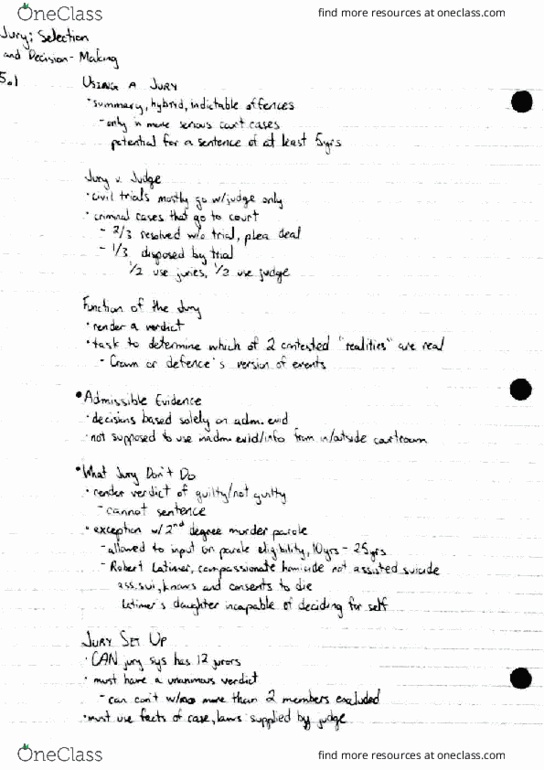 OneClass
find more resources at oneclass.com
Jury: Selection
and Decision-Making
5.1
USING A JURY
• summary, hybrid, indictable offences
- only in more serious court cases
potential for a sentence of at least 5yrs
Jury v. Judge
• civil trials mostly go w/judge only
• criminal cases that go to court
- 2/3 resolved w/o trial, plea deal
- 1/3 disposed by trial
1/2 use juries, 1/2 use judge
Function of the Jury
• render a verdict
• task to determine which of 2 contested "realities" are real
- Crown or defence's version of events
• Admissible Evidence
• decisions based solely on adm. evid
• not supposed to use inadm. evid/info from in/outside courtroom
• What Jury Don't Do
• render verdict of guilty/not guilty
- cannot sentence
• exception w/ 2nd degree murder parole
- allowed to input on parole eligibility, 10yrs - 25yrs
- Robert Latimer, compassionate homicide not assisted suicide
ass. sui, knows and consents to die
Latimer's daughter incapable of deciding for self
JURY SET UP
• CAN jury sys has 12 jurors
• must have a unanimous verdict
- can con't w/ no more than 2 members excluded
• must use facts of case, laws supplied by judge
OneClass
find more resources at oneclass.com